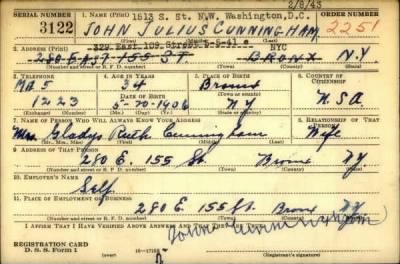 2/8/43
SERIAL NUMBER 1. NAME (Print) 1613 S. St. N.W. Washington, D.C. ORDER NUMBER
3122 JOHN JULIUS CUNNINGHAM 2251
(First) (Middle) (Last)
2. ADDRESS (Print) 329 East 109 Street 5-5-41 NYC
280 EAST 155 ST. BRONX N.Y.
(Number and street or R. F. D. number) (Town) (County) (State)
3. TELEPHONE 4. AGE IN YEARS 5. PLACE OF BIRTH 6. COUNTRY OF CITIZENSHIP
34 Bronx
DATE OF BIRTH (Town or county)
1223 5-20-1906 NY U.S.A
(Exchange) (Number) (Mo.) (Day) (Yr.) (State or country)
7. NAME OF PERSON WHO WILL ALWAYS KNOW YOUR ADDRESS 8. RELATIONSHIP OF THAT PERSON
Mrs. Gladys Ruth Cunningham Wife
(Mr., Mrs., Miss) (First) (Middle) (Last)
9. ADDRESS OF THAT PERSON
280 E. 155 St. Bronx NY.
(Number and street or R. F. D. number) (Town) (County) (State)
10. EMPLOYER'S NAME
Self
11. PLACE OF EMPLOYMENT OR BUSINESS
280 E. 155 St. Bronx NY
(Number and street or R. F. D. number) (Town) (County) (State)
I AFFIRM THAT I HAVE VERIFIED ABOVE ANSWERS AND THAT THEY ARE TRUE.
REGISTRATION CARD
D. S. S. Form 1 (Registrant's signature)